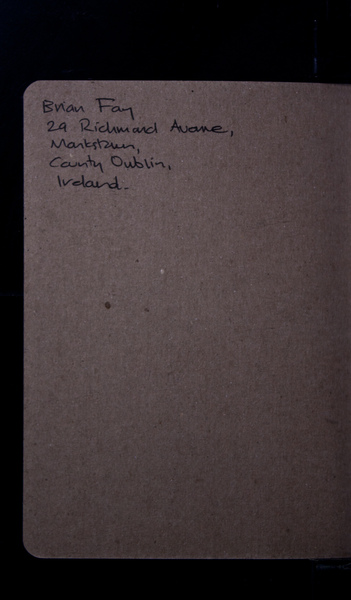 Brian Fay
29 Richmond Avenue,
Monkstown,
County Dublin,
Ireland.